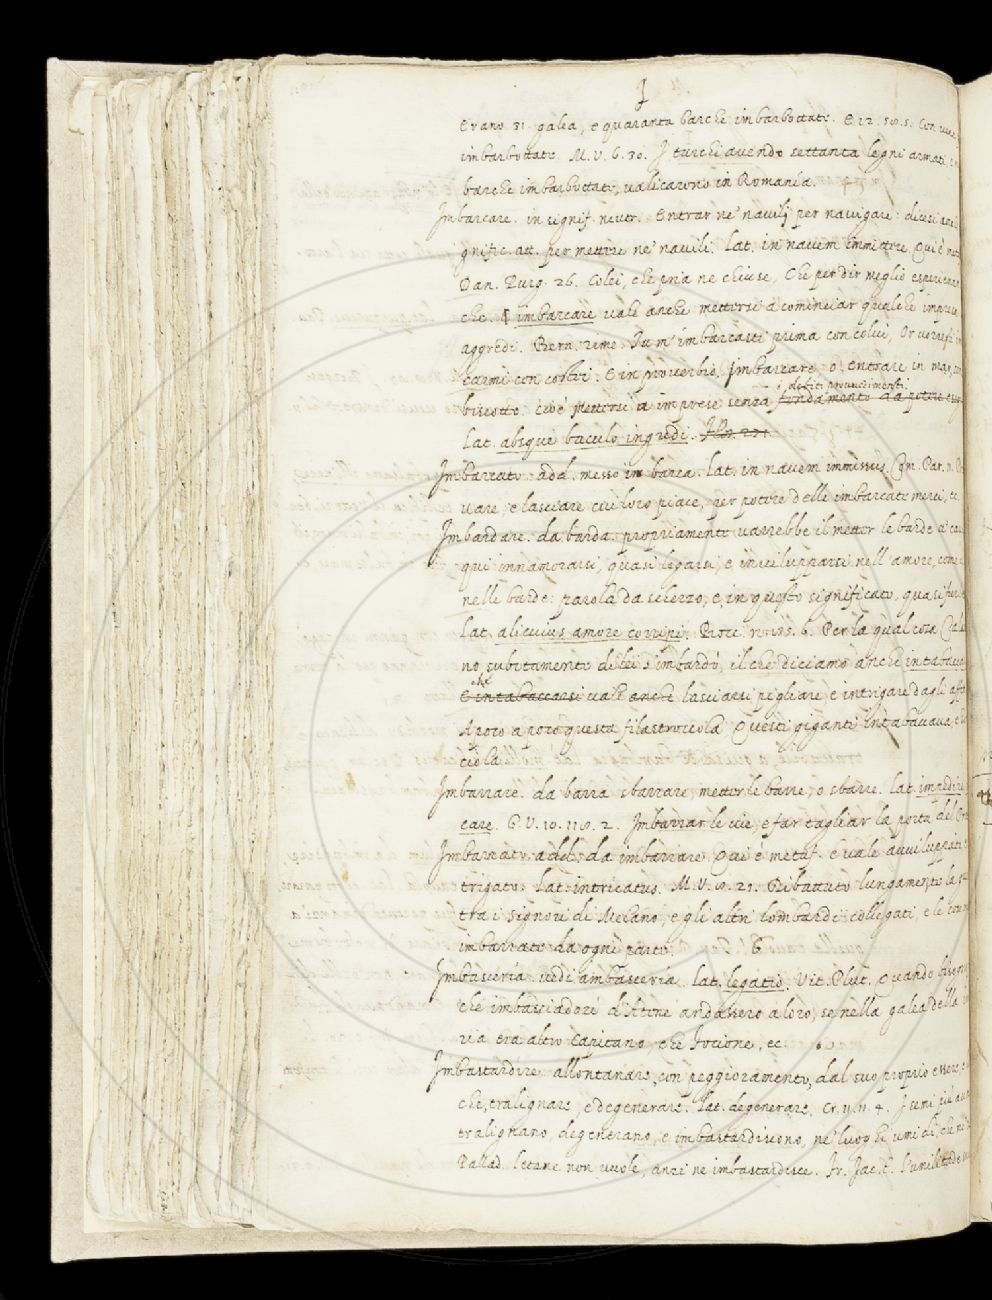 I
Erano 31. galea, e quaranta barche imbarbottate. E 12.
imbarbottate. M. V. 6. 30. I turchi avendo settanta legni armati,
barche imbarbottate, valicarono in Romania.
Imbarcare. in signif. neutr. Entrar ne' navilj per navigare: dicesi
gnific. att. per mettere ne' navili. Lat. in navem immittere. Qui è
Dan. Purg. 26. Colei, che pria ne chiese, Che per dir meglio
che. ¶ imbarcare vale anche mettersi a cominciar qualche impresa
aggredi. Bern. rime. Tu m' imbarcasti prima con colui, Or
carmi con costui. E in proverbio, Imbarcare, o, entrare in mare,
i debiti provvedimenti.
biscotto. cioè Mettersi a imprese senza fondamento da potere
Lat. absque baculo ingredi.
Imbarcato. add. messo in barca. Lat. in navem immissus. Com. Par.
vare, e lasciare cui loro piace, per potere delle imbarcate merci,
Imbardare. da barda. propriamente varrebbe il metter le barde a'
qui innamorarsi, quasi legarsi, e invilupparsi nell' amore, come
nelle barde: parola da scherzo, e, in questo significato, quasi
Lat. alicuius amore corripi. Bocc. Per la qual cosa
no subitamente di lei s'imbardò, il che diciamo anche
che
E intabaccarsi vale anche lasciarsi pigliare, e intrigare dagli
A poco a poco questa filastroccola Questi giganti intabaccava, e
ciola.
Imbarrare. da barra sbarrare, metter le barre, o sbarre. Lat. impedire
care. G. V. 10. 2. Imbarrar le vie, e far tagliar la porta del
Imbarrato. add. da imbarrare Qui è metaf. e vale avviluppato
trigato. Lat. intricatus. M. V. 21. Ributtuto lungamente la
tra i signori di Melano, e gli altri Lombardi collegati, e le
imbarrate da ogni parte.
Imbasceria. vedi ambasceria. Lat. legatio. Vit. Plut. Quando
che imbasciadori d'Atene andassero a loro, se nella galea della
ria era altro capitano, che Focione, ec.
Imbastardire. allontanare, con peggioramento, dal suo proprio essere,
che, tralignare, e degenerare. Lat. degenerare. Cr. 11. 11. 4. I semi più
tralignano, degenerano, e imbastardivono, ne' luoghi umidi, che
Pallad. letane non vuole, anzi ne imbastardisce. Fr. Jac. T. L'umilitade